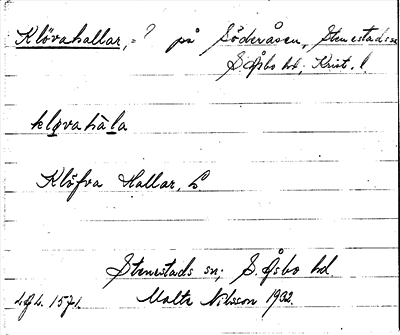 Klövahallar, = ? på Söderåsen, Stenestads sn
S. Åsbo hd; Krist. l.
klovahala
Klöfva Hallar, L
Stenestads sn; S. Åsbo hd.
Malte Nilsson 1932.
1571.